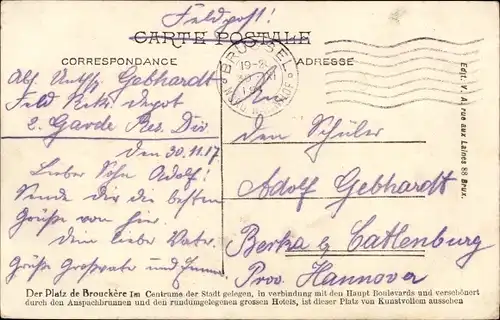 Feldpost!
CARTE POSTALE
CORRESPONDANCE
ADRESSE
BRÜSSEL
Abs. Untffz. Gebhardt
Feld Rekr. Depot
2. Garde Res. Div
den 30.11.17
Lieber Sohn Adolf!
Sende dir die besten
Grüße von hier.
Dein lieber Vater.
Grüße Großvater und
An
den Schüler
Adolf Gebhardt
Berka b/ Catlenburg
Prov. Hannover
Edit. V. A. rue aux Laines 88 Brux.
Der Platz de Brouckère Im Centrume der Stadt gelegen, in verbindung mit den Haupt Boulevards und verschönert
durch den Anspachbrunnen und den rundumgelegenen grossen Hotels, ist dieser Platz von Kunstvollem aussehen